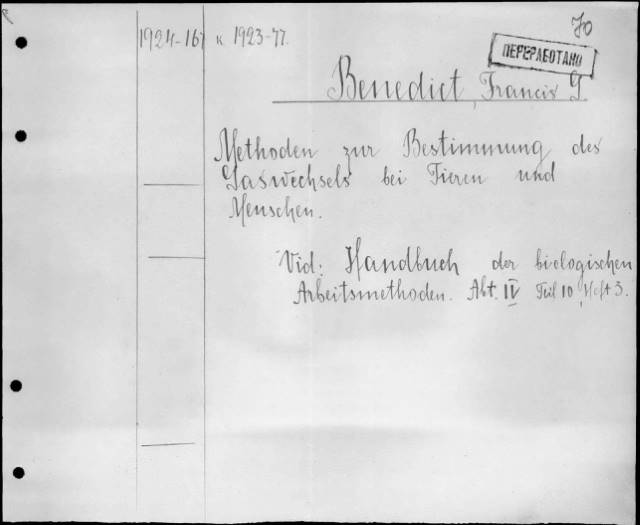 Jo
1924-167 к 1923-77.
ПЕРЕРАБОТАНО
Benedict, Francis G.
Methoden zur Bestimmung des
Gaswechsels bei Tieren und
Menschen.
Vid: Handbuch der biologischen
Arbeitsmethoden. Abt. IV Teil 10, Heft 3.